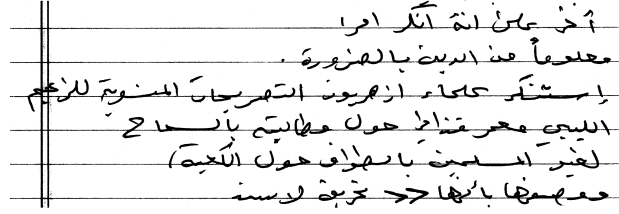 آخر على أنه أنكر امرا
معلوماً من الدين بالضرورة .
إستنكر علماء ازهريون التصريحات المنسوبة للزعيم
الليبي معمر قذافي حول مطالبته بالسماح
لغير المسلمين بالطواف حول الكعبة)
ووصفها بأنها >> لا سند